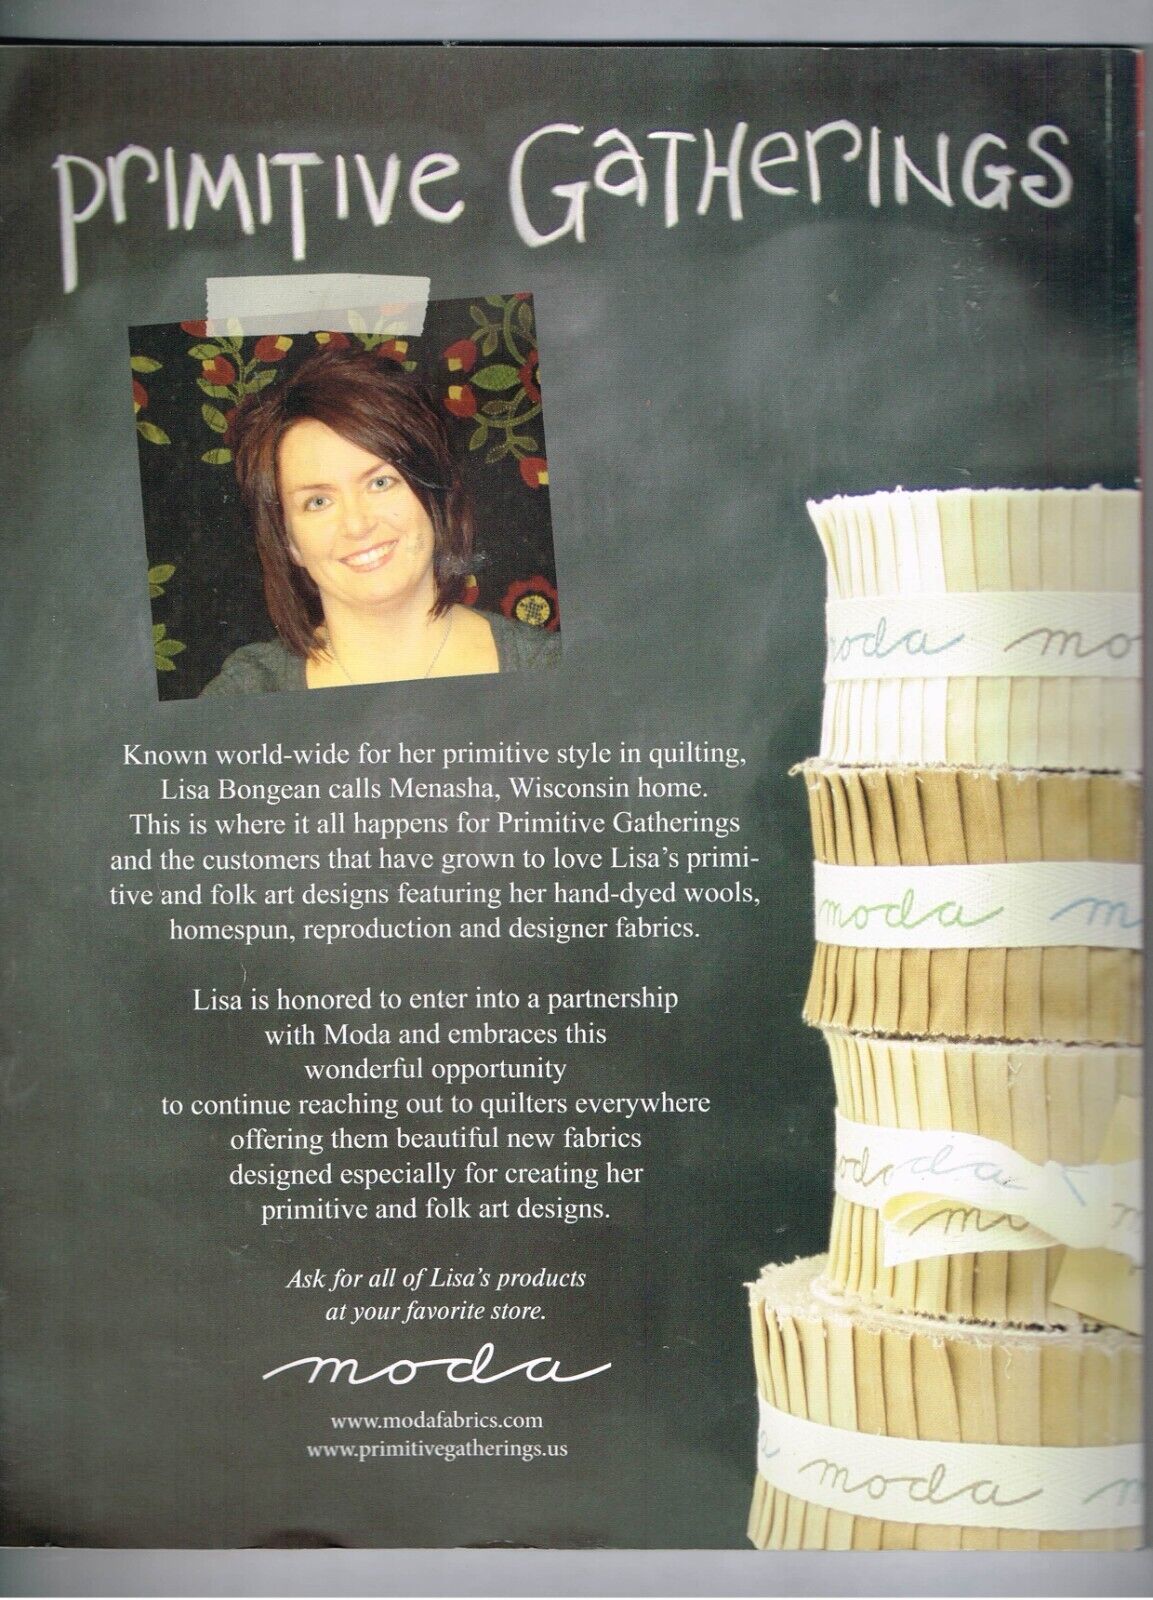 Primitive Gatherings
Known world-wide for her primitive style in quilting,
Lisa Bongean calls Menasha, Wisconsin home.
This is where it all happens for Primitive Gatherings
and the customers that have grown to love Lisa's primi-
tive and folk art designs featuring her hand-dyed wools,
homespun, reproduction and designer fabrics.
Lisa is honored to enter into a partnership
with Moda and embraces this
wonderful opportunity
to continue reaching out to quilters everywhere
offering them beautiful new fabrics
designed especially for creating her
primitive and folk art designs.
Ask for all of Lisa's products
at your favorite store.
moda
www.modafabrics.com
www.primitivegatherings.us
moda mo
moda m
moda
moda m